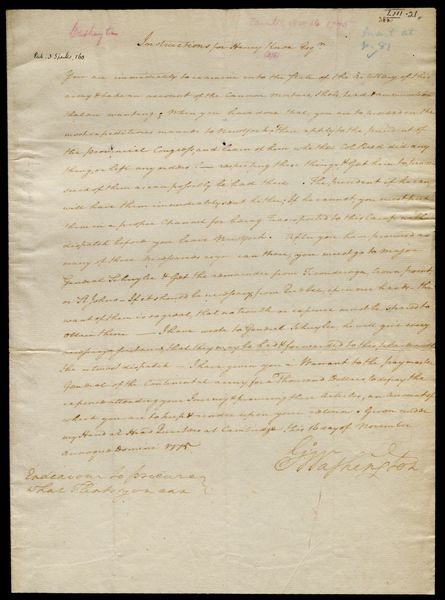 LIII-21.
Washington
Camb. Nov 16 1775
Print. at
p. 81
Pub. 3 Sparks, 160
Instructions for Henry Knox Esqr
You are immediately to examine into the State of the Artillery of this
army & take an account of the Cannon Mortars, Shels, Lead & ammunition
that are wanting; When you have done that, you are to proceed in the
most expeditious manner to New York; There apply to the president of
the provincial Congress, and learn of him, whether Col Reed did any
thing, or left any orders respecting these things, & Get him to procure
such of them as can possibly be had there. The president if he can,
will have them immediately sent hither; If he cannot, you must put
them in a proper Channel for being Transported to this Camp with
dispatch before you leave New York. After you have procured as
many of these Necessaries as you can there, you must go to Major
General Schuyler & Get the remainder from Ticonderoga, Crown point,
or St Johns – If it should be necessary, from Quebec, if in our hands – the
want of them is so great, that no trouble or expence must be spared to
obtain them — I have wrote to General Schuyler, he will give every
necessary assistance, that they may be had & forwarded to this place with
the utmost dispatch – I have given you a Warrant to the paymaster
General of the Continental army, for a Thousand Dollars to defray the
expence attending your Journey, & procuring these Articles, an Account of
which you are to keep & render upon your return – Given under
my Hand at Head Quarters at Cambridge this 16 day of November
Annoque Domini 1775
Go Washington
Endeavour to procure
what Flints you can